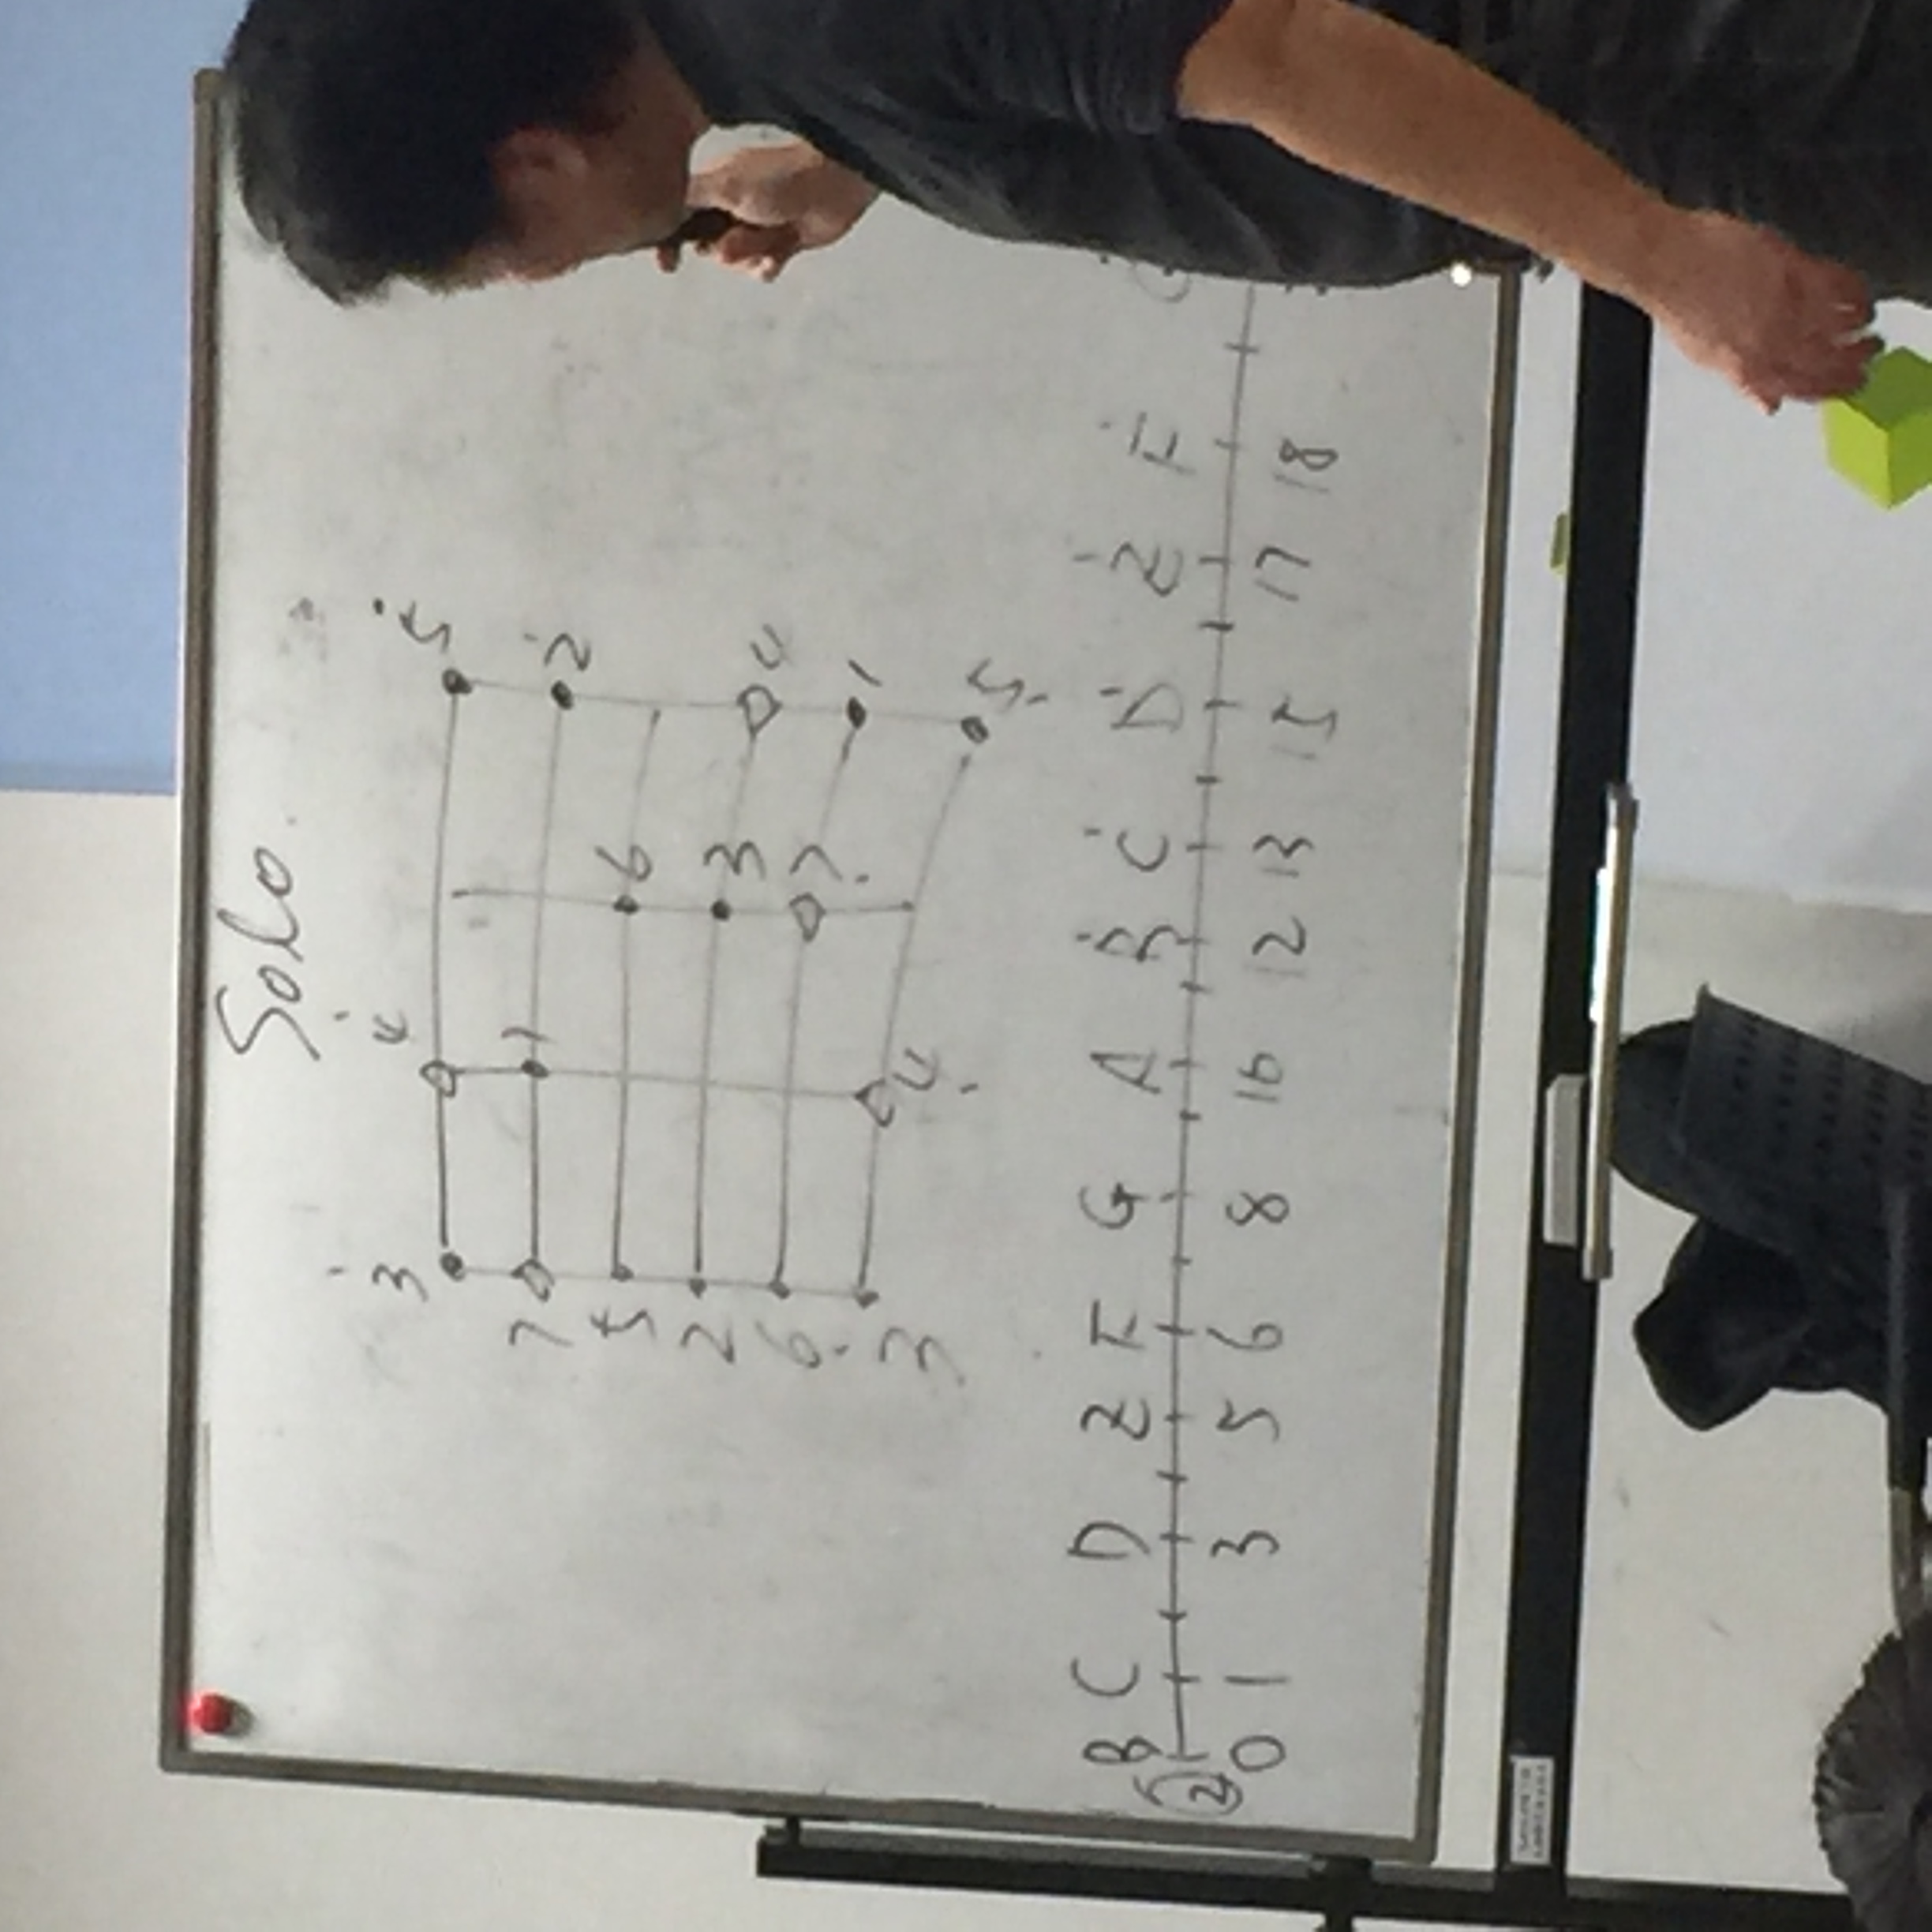 Solo
3 4 5
7 1 2
5 6
2 3 4
6 7 1
3 4 5
B C D E F G A B C D E F
2
0 1 3 5 6 8 10 12 13 15 17 18